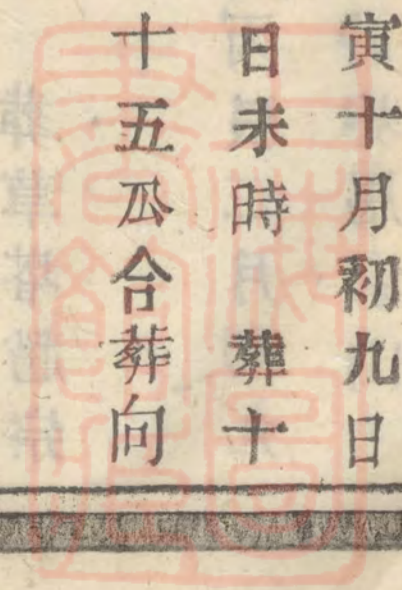 寅十月初九日
日未時　葬十
十五瓜合葬向